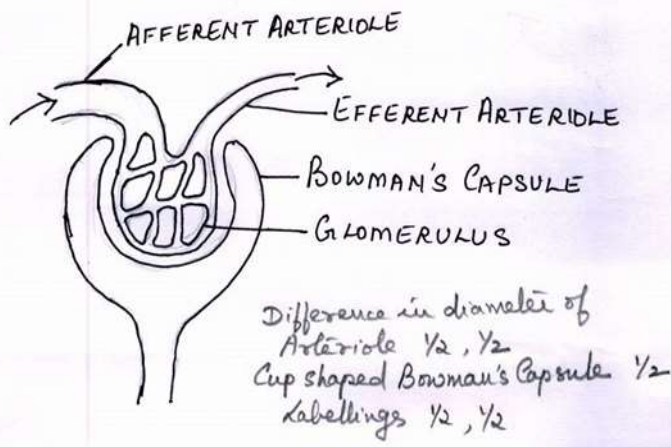 AFFERENT ARTERIOLE
EFFERENT ARTERIOLE
BOWMAN'S CAPSULE
GLOMERULUS
Difference in diameter of
Arteriole 1/2, 1/2
Cup shaped Bowman's Capsule 1/2
Labellings 1/2, 1/2